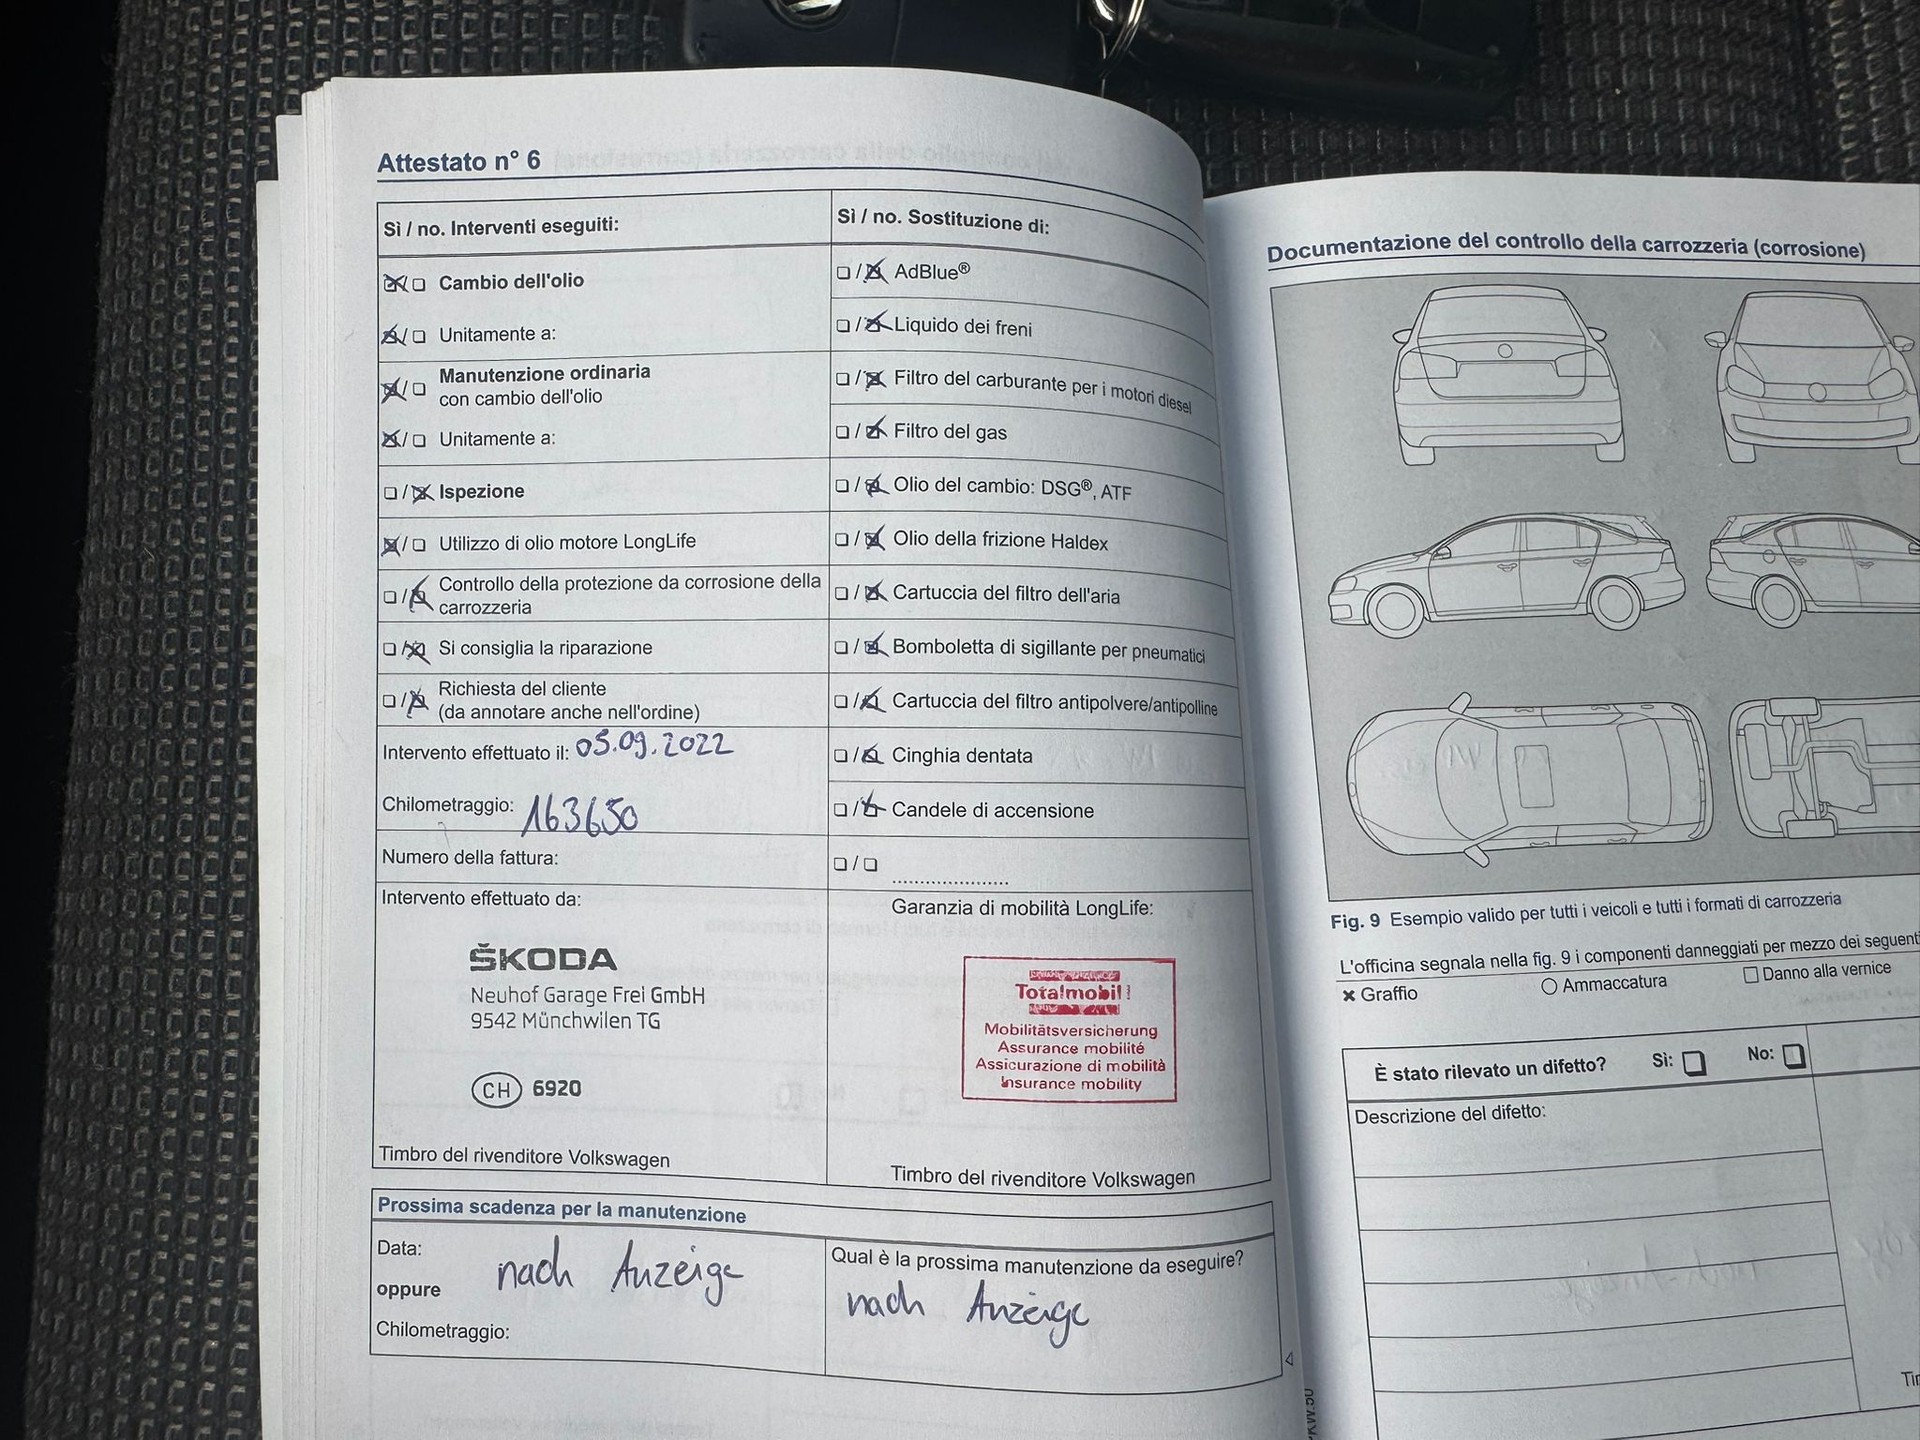 Attestato n° 6
Sì / no. Interventi eseguiti:
Cambio dell'olio
Unitamente a:
Manutenzione ordinaria
con cambio dell'olio
Unitamente a:
Ispezione
Utilizzo di olio motore LongLife
Controllo della protezione da corrosione della
carrozzeria
Si consiglia la riparazione
Richiesta del cliente
(da annotare anche nell'ordine)
Intervento effettuato il: 05.09.2022
Chilometraggio: 163650
Numero della fattura:
Intervento effettuato da:
ŠKODA
Neuhof Garage Frei GmbH
9542 Münchwilen TG
CH 6920
Timbro del rivenditore Volkswagen
Sì / no. Sostituzione di:
AdBlue®
Liquido dei freni
Filtro del carburante per i motori diesel
Filtro del gas
Olio del cambio: DSG®, ATF
Olio della frizione Haldex
Cartuccia del filtro dell'aria
Bomboletta di sigillante per pneumatici
Cartuccia del filtro antipolvere/antipolline
Cinghia dentata
Candele di accensione
....................
Garanzia di mobilità LongLife:
Totalmobil!
Mobilitätsversicherung
Assurance mobilité
Assicurazione di mobilità
Insurance mobility
Timbro del rivenditore Volkswagen
Prossima scadenza per la manutenzione
Data:
oppure
nach Anzeige
Chilometraggio:
Qual è la prossima manutenzione da eseguire?
nach Anzeige
Documentazione del controllo della carrozzeria (corrosione)
Fig. 9 Esempio valido per tutti i veicoli e tutti i formati di carrozzeria
L'officina segnala nella fig. 9 i componenti danneggiati per mezzo dei
Graffio
Ammaccatura
Danno alla vernice
È stato rilevato un difetto? Sì: No:
Descrizione del difetto: